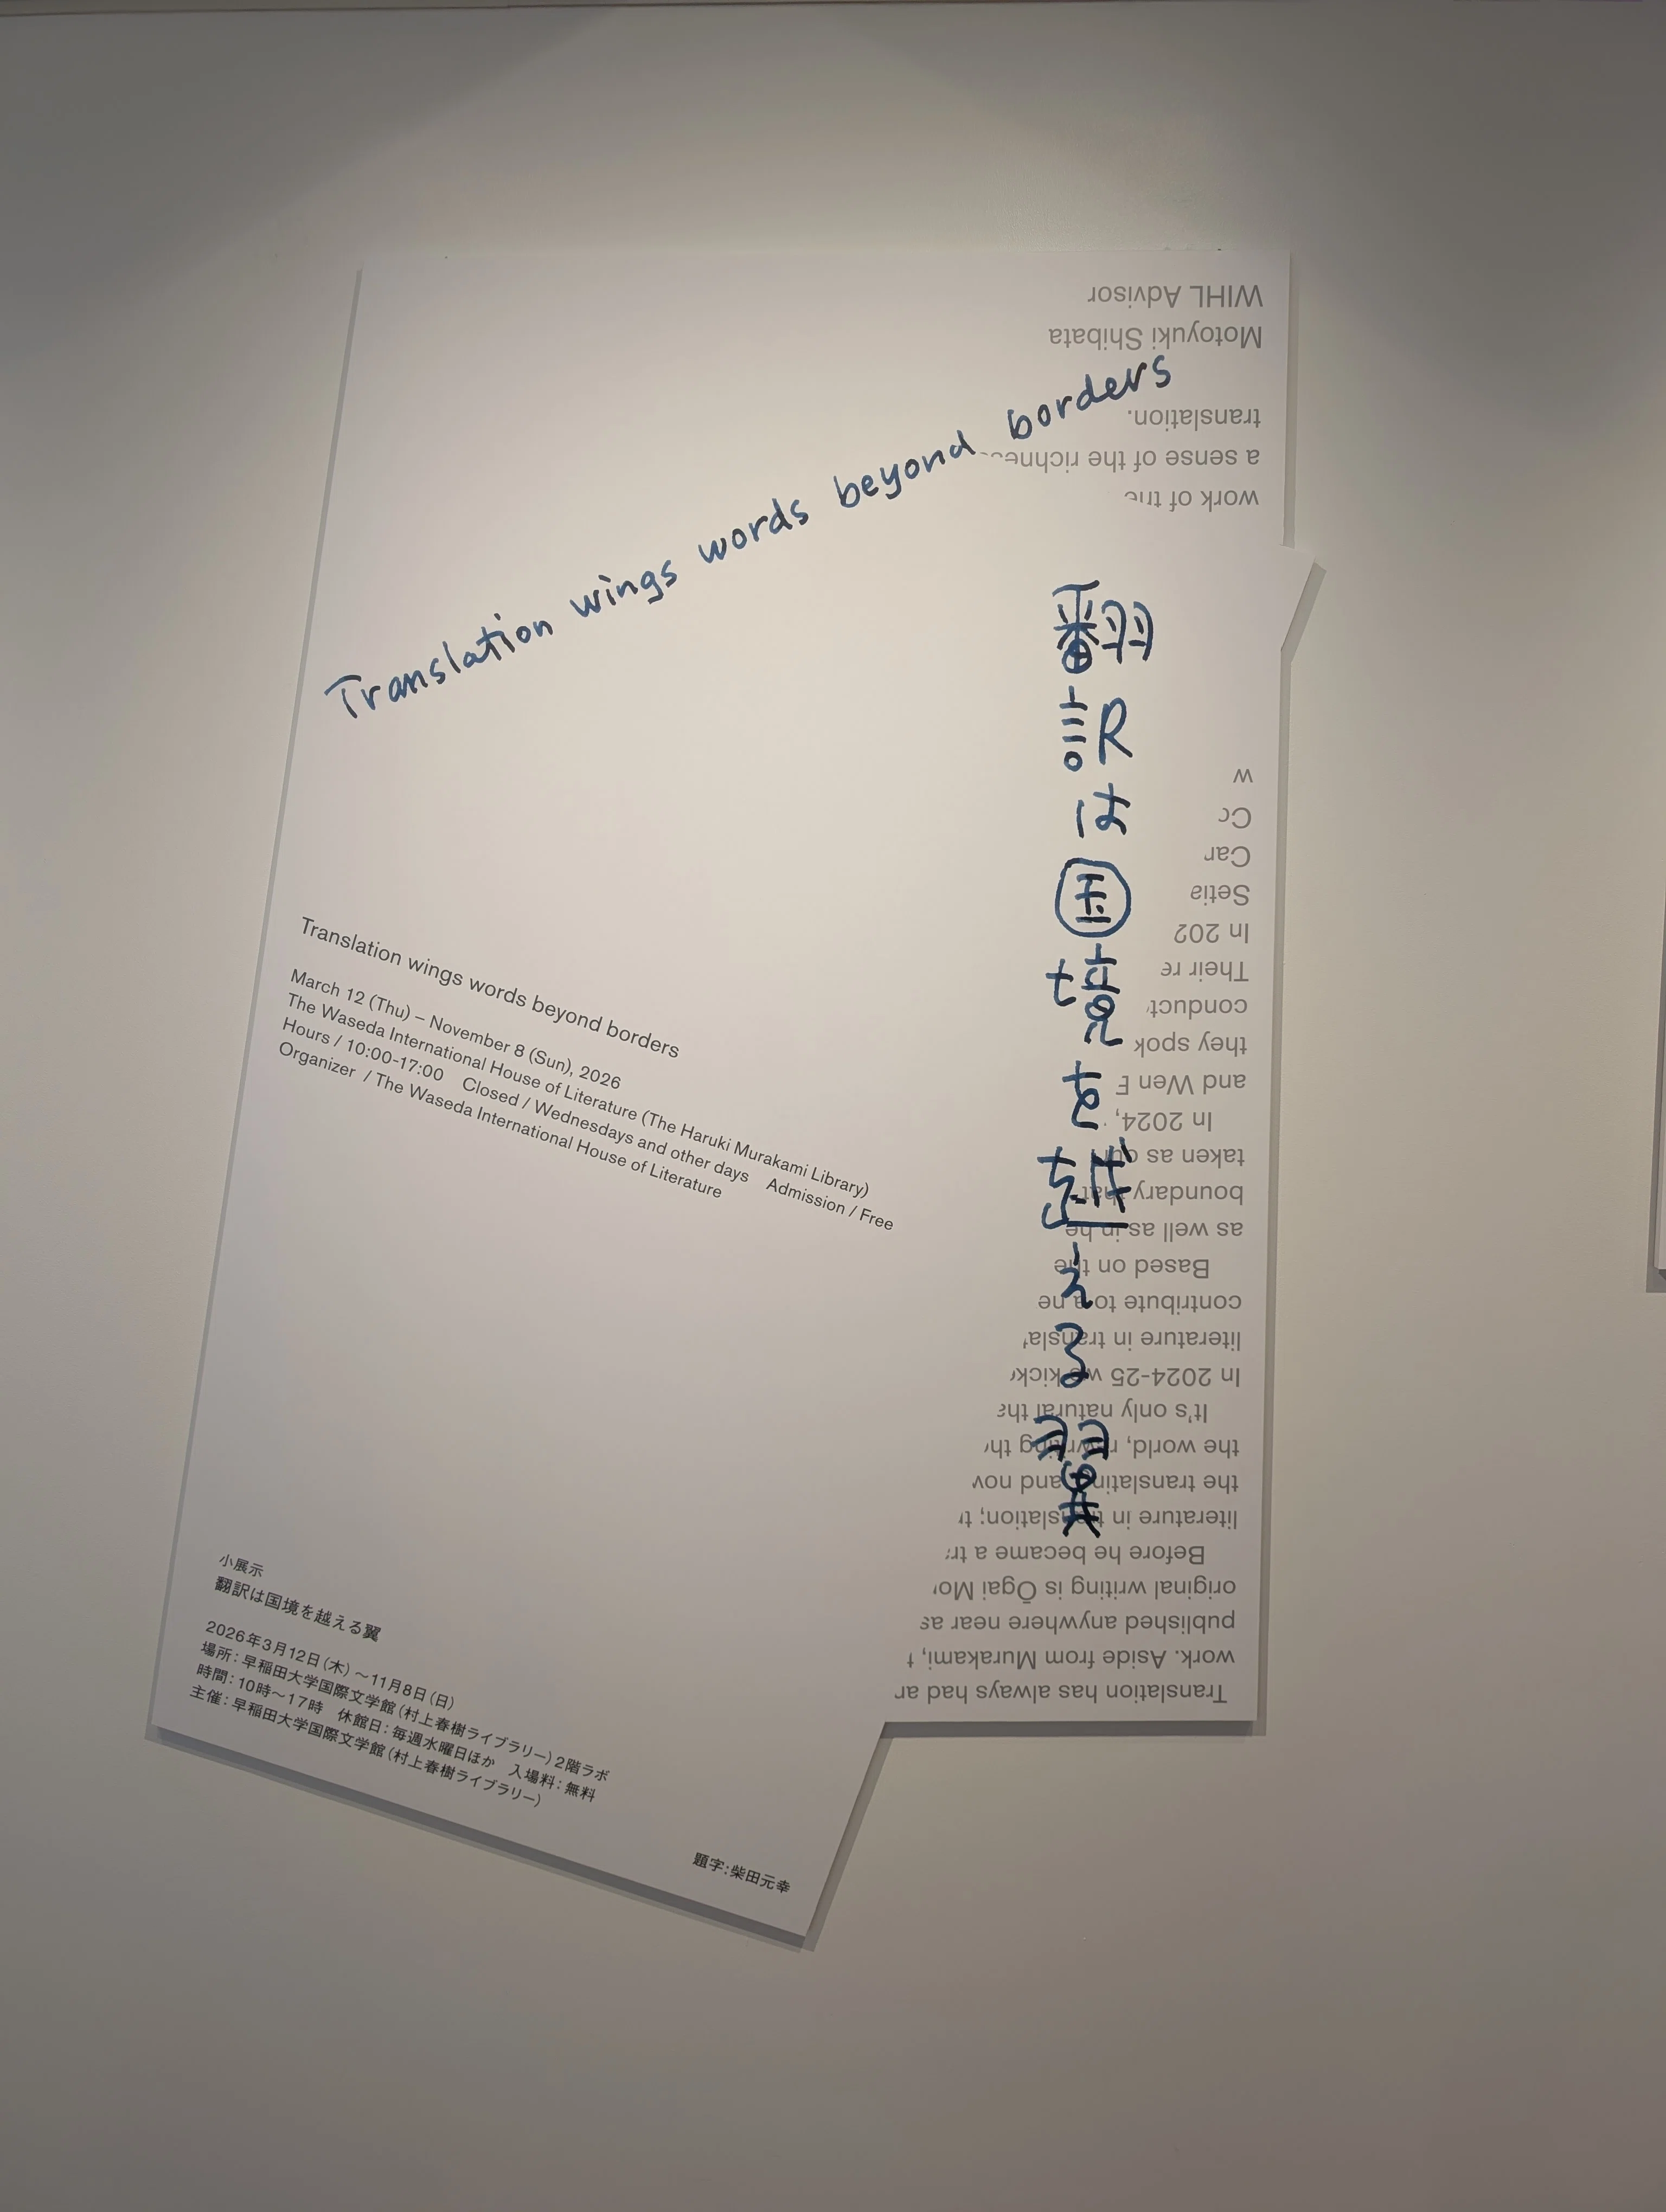 Translation wings words beyond borders
翻訳は国境を越える翼
Translation wings words beyond borders
March 12 (Thu) – November 8 (Sun), 2026
The Waseda International House of Literature (The Haruki Murakami Library)
Hours / 10:00-17:00 Closed / Wednesdays and other days Admission / Free
Organizer / The Waseda International House of Literature
小展示
翻訳は国境を越える翼
2026年3月12日(木)～11月8日(日)
場所:早稲田大学国際文学館(村上春樹ライブラリー)2階ラボ
時間:10時～17時 休館日:毎週水曜日ほか 入場料:無料
主催:早稲田大学国際文学館(村上春樹ライブラリー)
題字:柴田元幸
Translation has always had
work. Aside from Murakami,
published anywhere near
original writing is Ōgai
Before he became a
literature in translation;
the translating and
the world, rewriting
It's only natural
In 2024-25 we
literature in
contribute to a
Based on the
as well as in
boundary that
taken as
In 2024,
and Wen
they
conduct
Their
In
work of
a sense of the
translation.
Motoyuki Shibata
WIHL Advisor